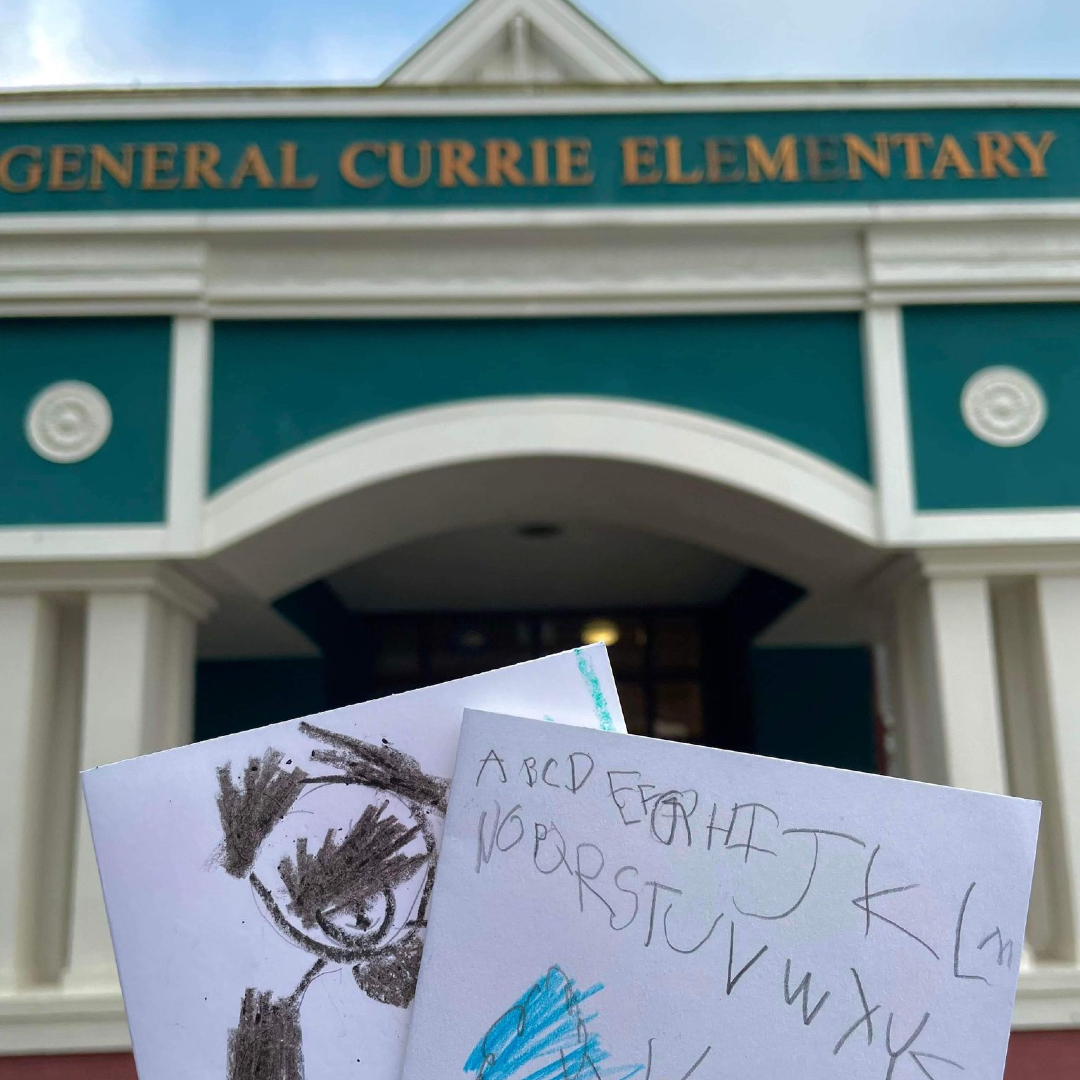 GENERAL CURRIE ELEMENTARY
A B C D E F G H I J K L m
N O P Q R S T U V W X Y